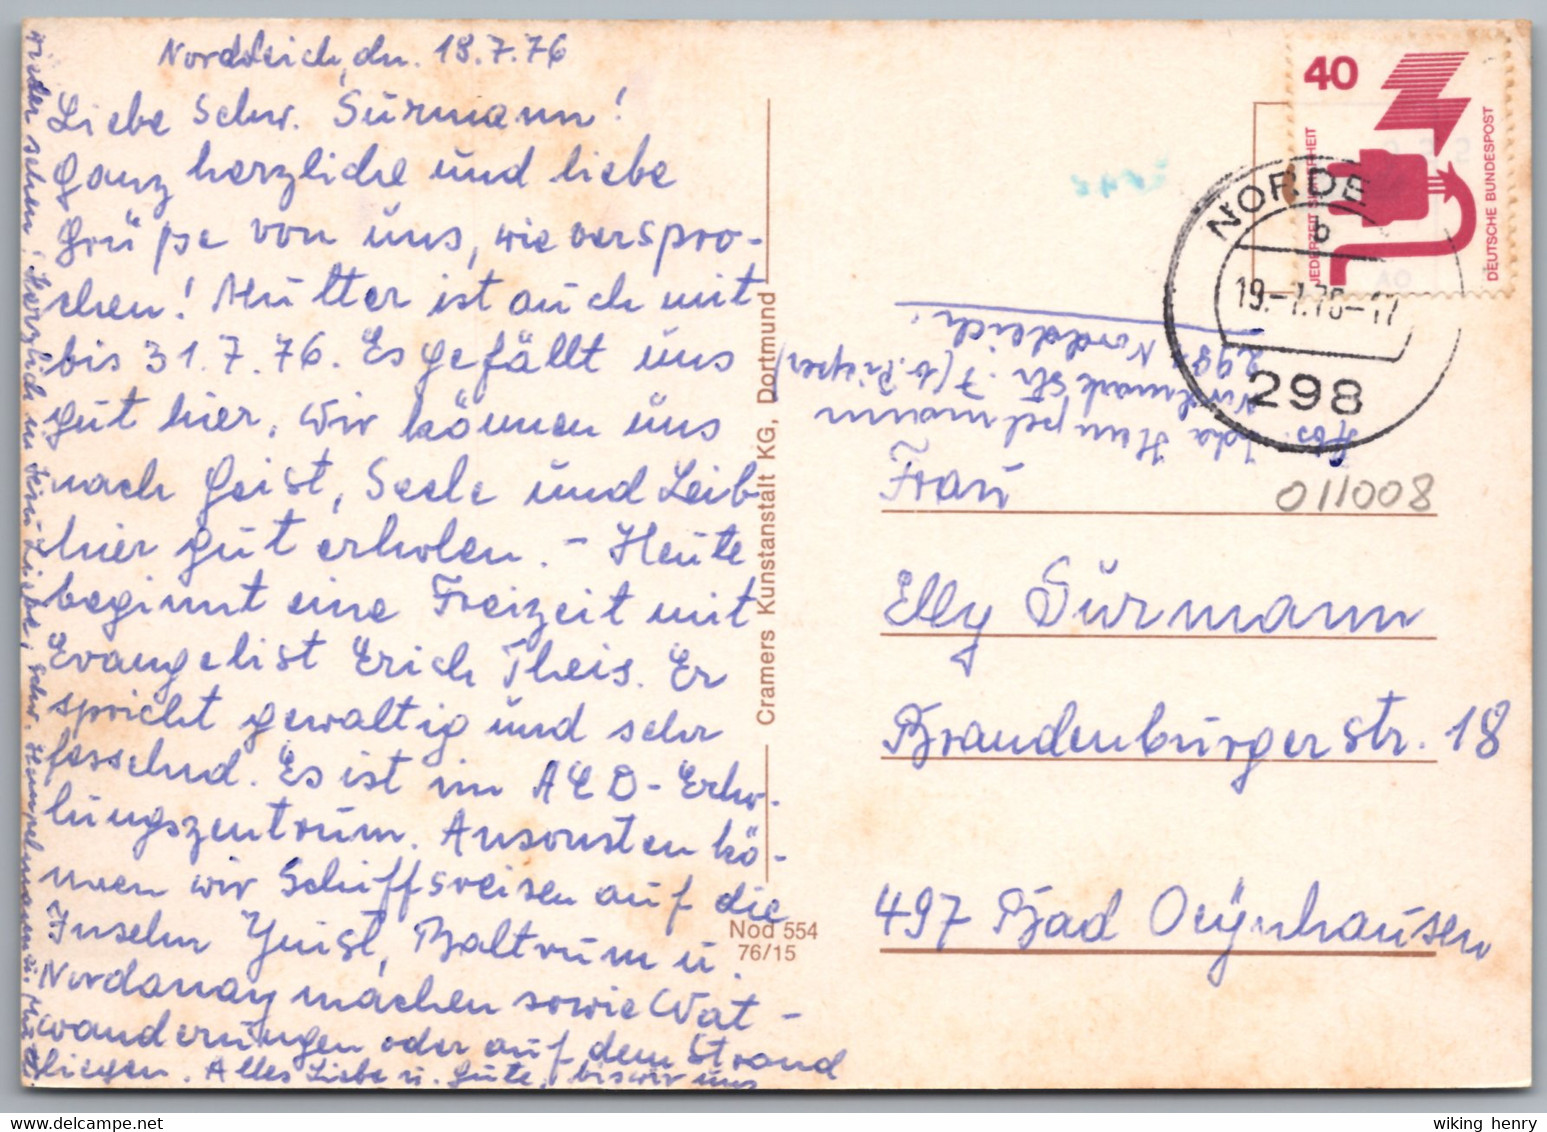 Norddeich, dn. 18.7.76
Liebe Schw. Surmann!
Ganz herzliche und liebe
Grüße von uns, wie verspro-
chen! Mutter ist auch mit
bis 31.7.76. Es gefällt uns
gut hier, wir können uns
nach Geist, Seele und Leib
hier gut erholen. - Heute
beginnt eine Freizeit mit
Evangelist Erich Theis. Er
spricht gewaltig und sehr
fesselnd. Es ist im AEO-Erho-
lungszentrum. Ansonsten kö-
nnen wir Schiffsreisen auf die
Inseln Juist, Baltrum u.
Nordanay machen sowie Wat-
wanderungen oder auf dem Strand
liegen. Alles Liebe u. Gute, bis wir uns
wieder sehen! Herzlich in Liebe, Schw. Hempelmann u. Mutti
Cramers Kunstanstalt KG, Dortmund
Nod 554
76/15
40
JEDERZEIT SICHERHEIT
DEUTSCHE BUNDESPOST
NORDE
b
19.-7.76-17
298
Abs. Hempelmann
Str. 7 (b. Pieper)
298 Norddeich
011008
Frau
Elly Surmann
Brandenburgerstr. 18
497 Bad Oeynhausen
wiking henry